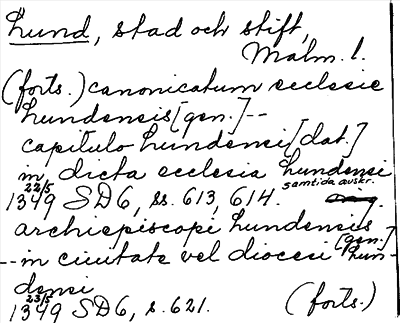 Lund, stad och stift,
Malm. l.
(forts.) canonicatum ecclesie
Lundensis [gen.] --
capitulo Lundensi [dat.]
in dicta ecclesia Lundensi
22/5 samtida avskr.
1349 SD6, ss. 613, 614.
archiepiscopi Lundensis [gen.]
-- in ciuitate vel diocesi Lun-
densi
23/5
1349 SD6, s. 621. (forts.)